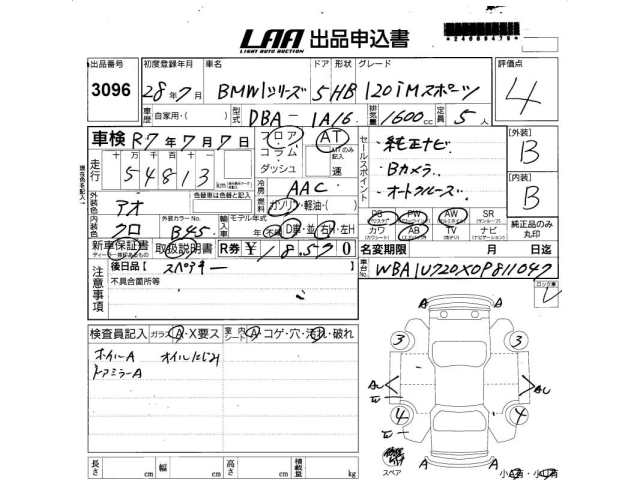 LAA 出品申込書
LIGHT AUTO AUCTION
出品番号 初度登録年月 車名 ドア 形状 グレード 評価点
3096 28年7月 BMW1シリーズ 5 HB 120iMスポーツ 4
車歴 自家用・( ) 型式 DBA-1A16 排気量 1600cc 定員 5人
車検 R7年7月7日 フロア AT セールスポイント ・純正ナビ [外装] B
コラム AT以外のみ記入 ・Bカメラ
走行 十万 万 千 百 十 5 4 8 1 3 km ダッシュ 速 ・オートクルーズ [内装] B
冷房 AAC
外装色 アオ 色替車は色替と記入 燃料 ガソリン・軽油・( )
PS PW AW SR 純正品のみ丸印
カワ AB TV ナビ
内装色 クロ 外装カラーNo. B45 輸入車 モデル年式 年 不明 D車・並 右H・左H
新車保証書 取扱説明書 R券 ¥18,570 名変期限 月 日迄
ディーラー捺印あるもの
注意事項 後日品【 スペアキー 】 車台No. WBA1U720X0P811097
不具合箇所等
検査員記入 ガラス A・X要ス 室内シート A・コゲ・穴・汚れ・破れ
ホイルA オイルにじみ
ドアミラーA
A A
3 3
4 4
A A
スペア
長さ cm 幅 cm 高さ cm 積載量 kg